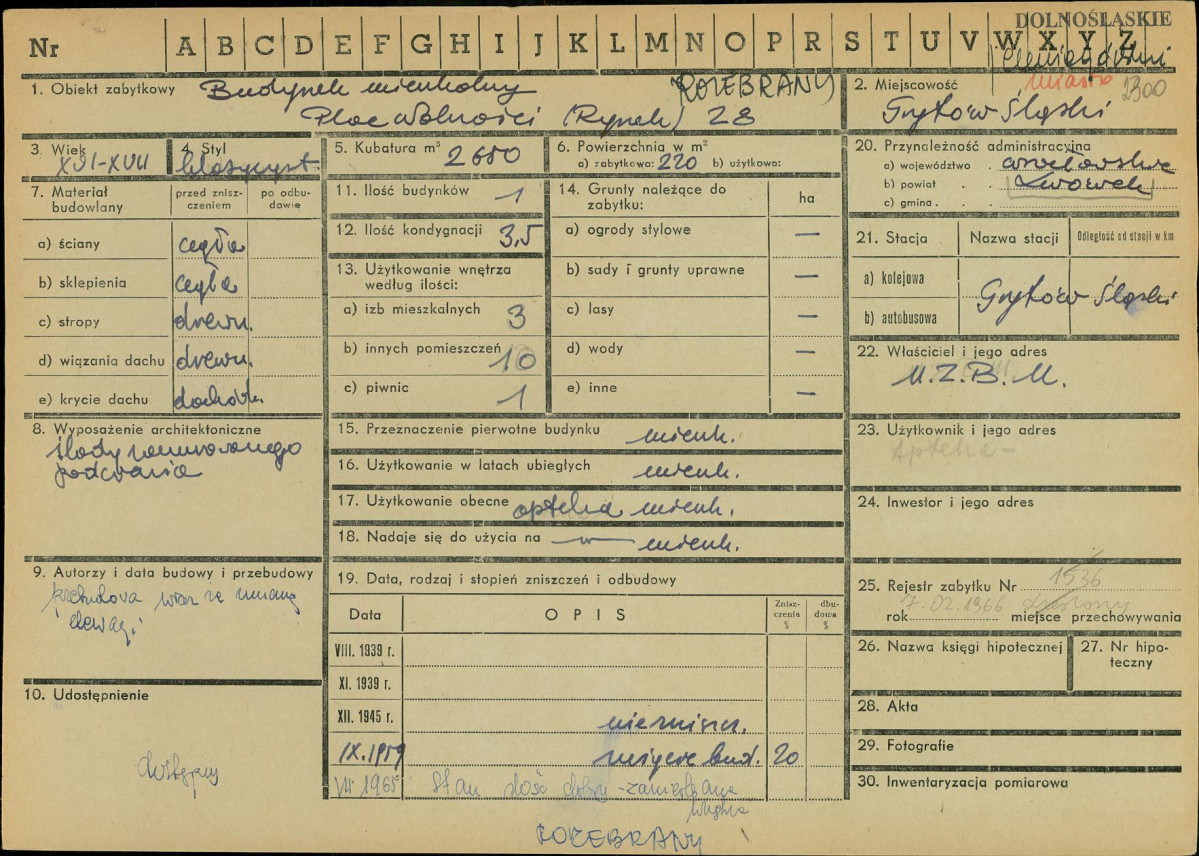 DOLNOŚLĄSKIE
Nr A B C D E F G H I J K L M N O P R S T U V W X Y Z
miasto 2300
1. Obiekt zabytkowy Budynek mieszkalny ROZEBRANY
Plac Wolności (Rynek) 28
2. Miejscowość
Gryfów Śląski
3. Wiek XVI-XVIII
4. Styl klasycyst.
5. Kubatura m³ 2680
6. Powierzchnia w m²
a) zabytkowa: 220 b) użytkowa:
20. Przynależność administracyjna
a) województwo wrocławskie
b) powiat Lwówek
c) gmina
7. Materiał budowlany
przed zniszczeniem
po odbudowie
a) ściany cegła
b) sklepienia cegła
c) stropy drewn.
d) wiązania dachu drewn.
e) krycie dachu dachówk.
11. Ilość budynków 1
12. Ilość kondygnacji 3,5
13. Użytkowanie wnętrza według ilości:
a) izb mieszkalnych 3
b) innych pomieszczeń 10
c) piwnic 1
14. Grunty należące do zabytku: ha
a) ogrody stylowe —
b) sady i grunty uprawne —
c) lasy —
d) wody —
e) inne —
21. Stacja Nazwa stacji Odległość od stacji w km
a) kolejowa
b) autobusowa
Gryfów Śląski
22. Właściciel i jego adres
M.Z.B.M.
8. Wyposażenie architektoniczne
ślady zamurowanego
podcienia
15. Przeznaczenie pierwotne budynku mieszk.
16. Użytkowanie w latach ubiegłych mieszk.
17. Użytkowanie obecne apteka mieszk.
18. Nadaje się do użycia na —"— mieszk.
23. Użytkownik i jego adres
Apteka -
24. Inwestor i jego adres
9. Autorzy i data budowy i przebudowy
przebudowa wraz ze zmianą
elewacji
10. Udostępnienie
dostępny
19. Data, rodzaj i stopień zniszczeń i odbudowy
Data OPIS Zniszczenia % dbudowa %
VIII. 1939 r.
XI. 1939 r.
XII. 1945 r. niezniszcz.
IX.1959 20
VII 1965 Stan dość dobry - zamieszkana
ROZEBRANY
25. Rejestr zabytku Nr 1536
7.02.1966
rok miejsce przechowywania
26. Nazwa księgi hipotecznej
27. Nr hipoteczny
28. Akta
29. Fotografie
30. Inwentaryzacja pomiarowa